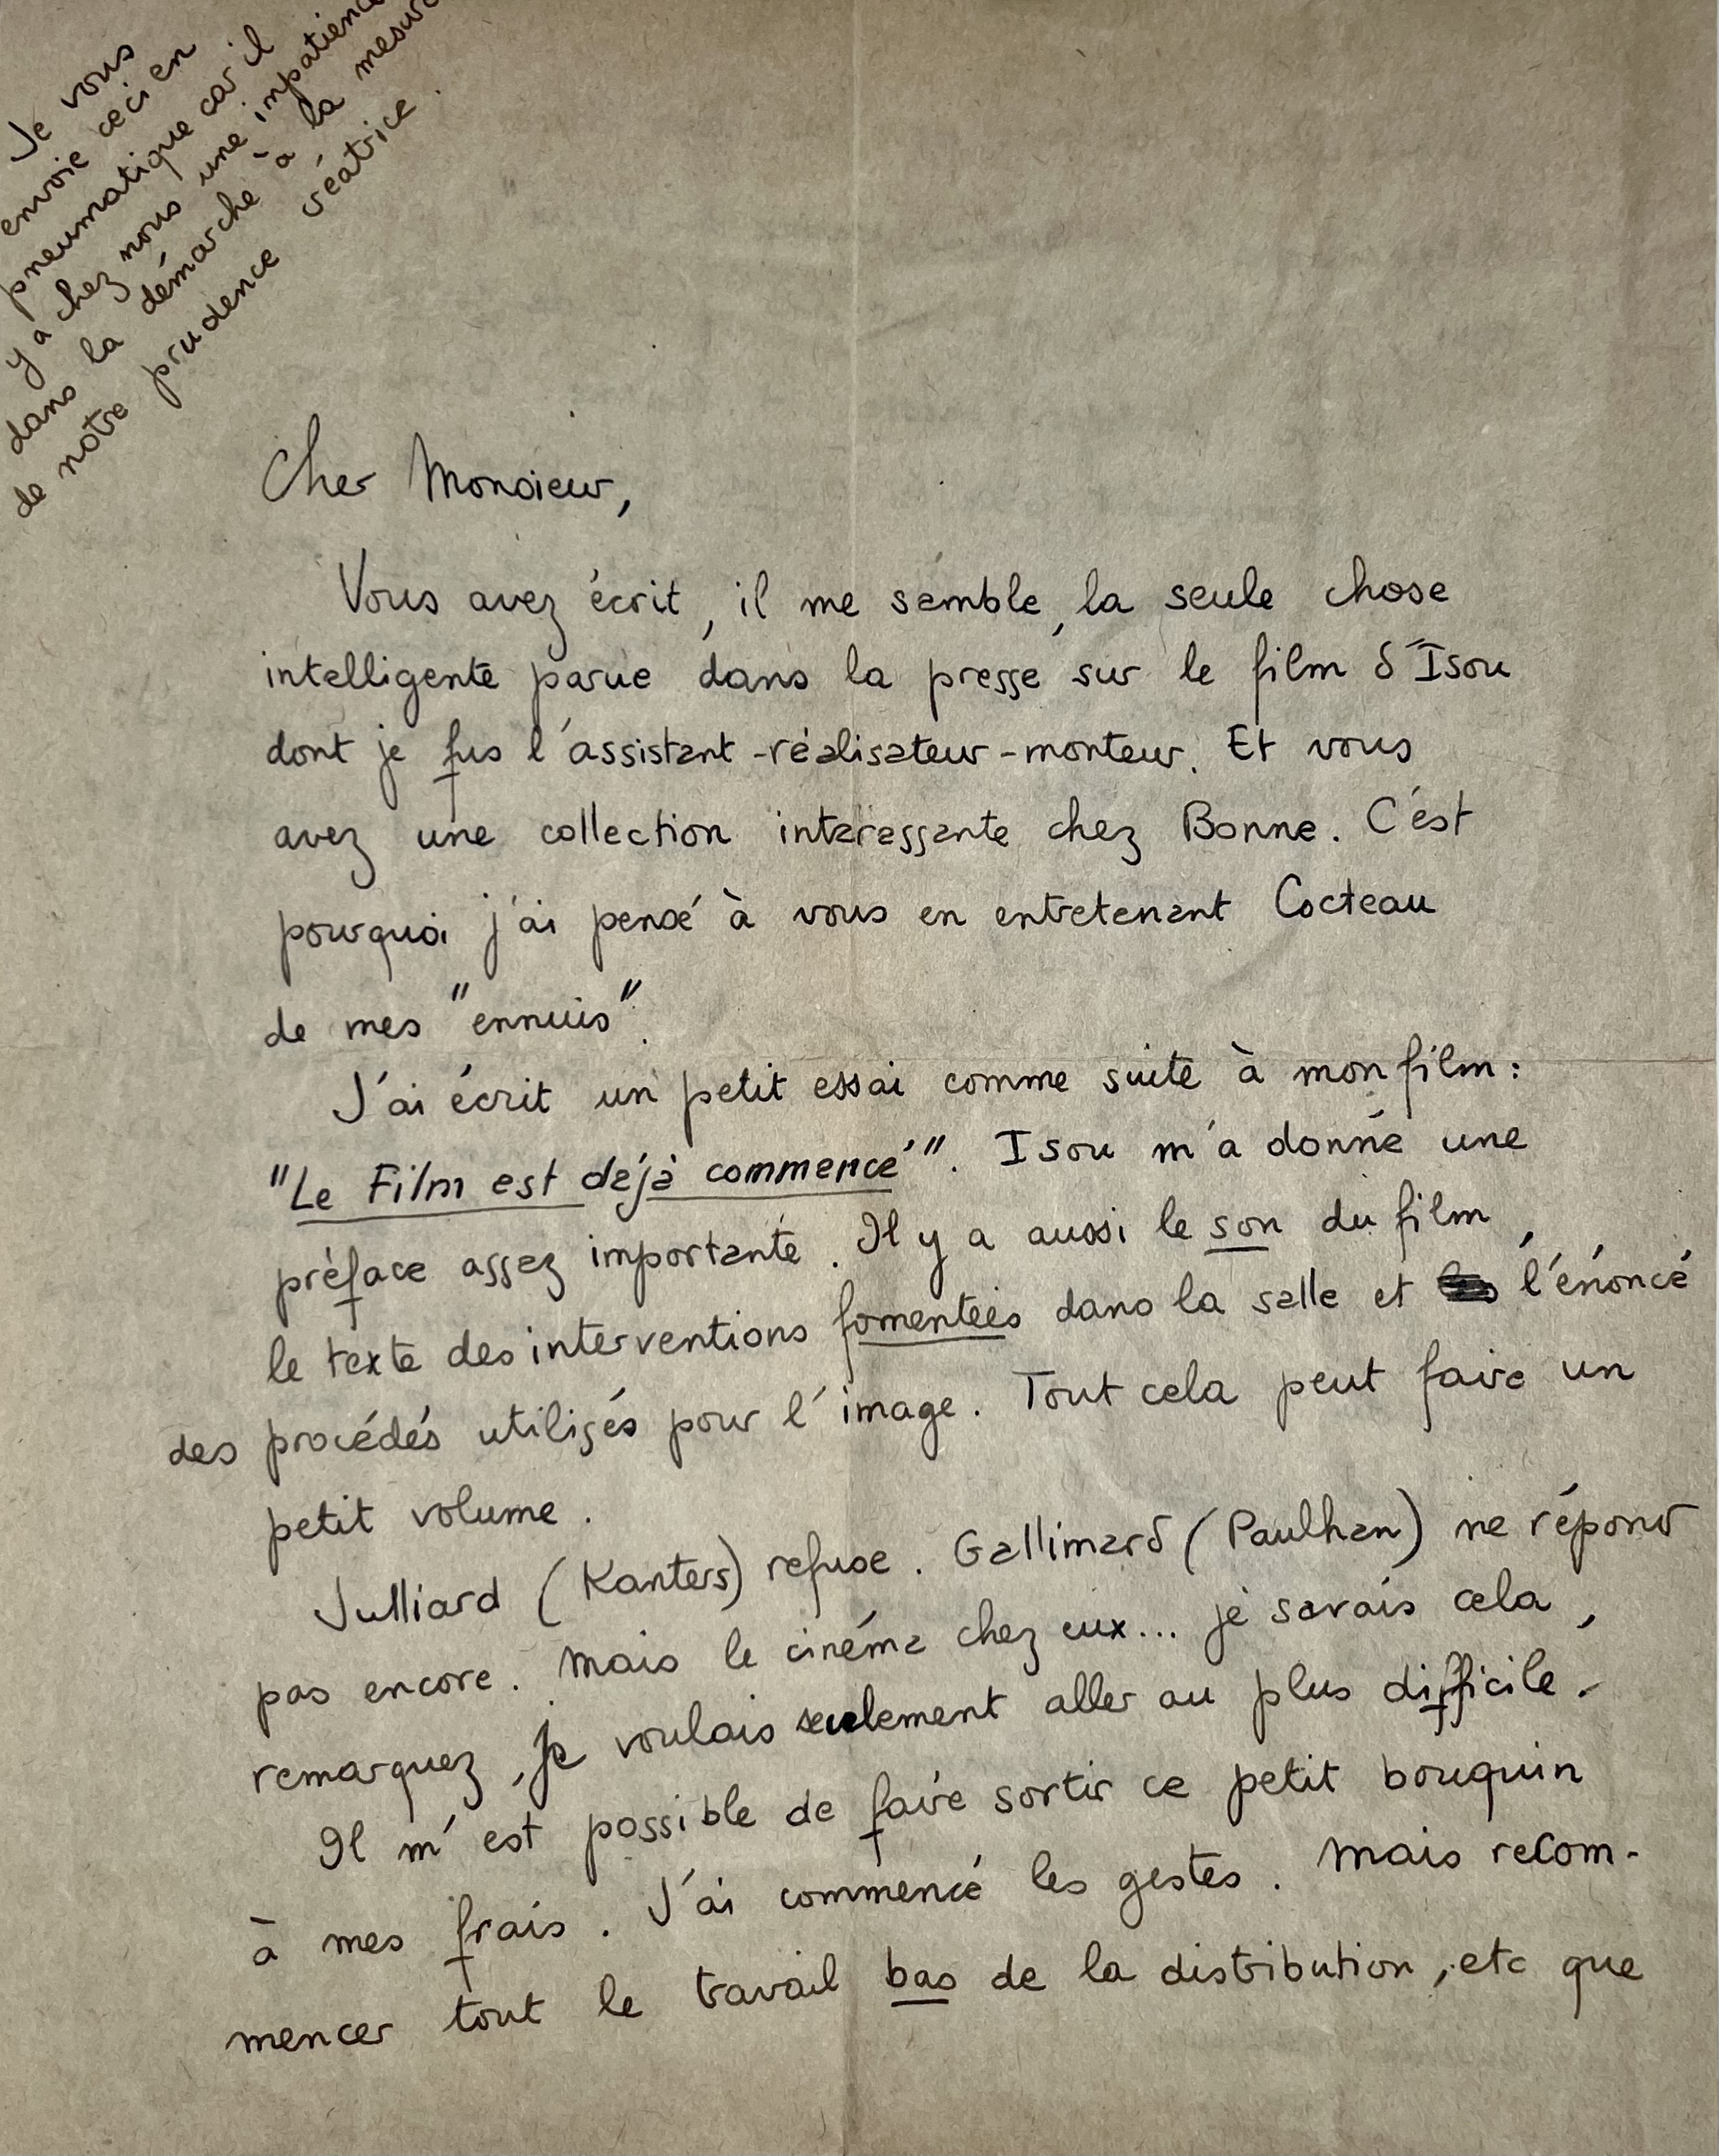 Je vous
envoie ceci en
pneumatique car il
y a chez nous une impatience
dans la démarche à la mesure
de notre prudence créatrice.
Cher Monsieur,
Vous avez écrit, il me semble, la seule chose
intelligente parue dans la presse sur le film d'Isou
dont je fus l'assistant-réalisateur-monteur. Et vous
avez une collection interessante chez Bonne. C'est
pourquoi j'ai pensé à vous en entretenant Cocteau
de mes "ennuis".
J'ai écrit un petit essai comme suite à mon film:
"Le Film est déjà commencé". Isou m'a donné une
préface assez importante. Il y a aussi le son du film,
le texte des interventions fomentées dans la salle et l'énoncé
des procédés utilisés pour l'image. Tout cela peut faire un
petit volume.
Julliard (Kanters) refuse. Gallimard (Paulhan) ne répond
pas encore. Mais le cinéma chez eux... je savais cela,
remarquez, je voulais seulement aller au plus difficile.
Il m'est possible de faire sortir ce petit bouquin
à mes frais. J'ai commencé les gestes. Mais recom-
mencer tout le travail bas de la distribution, etc que